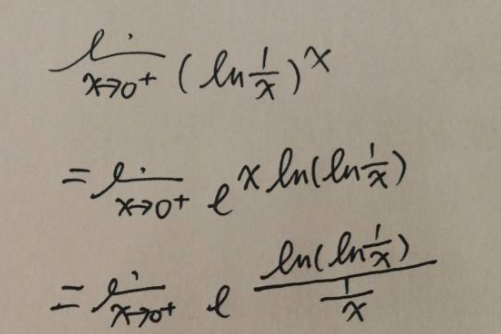 lim x→0⁺ (ln 1/x)^x
= lim x→0⁺ e^(x ln(ln 1/x))
= lim x→0⁺ e^(ln(ln 1/x) / (1/x))